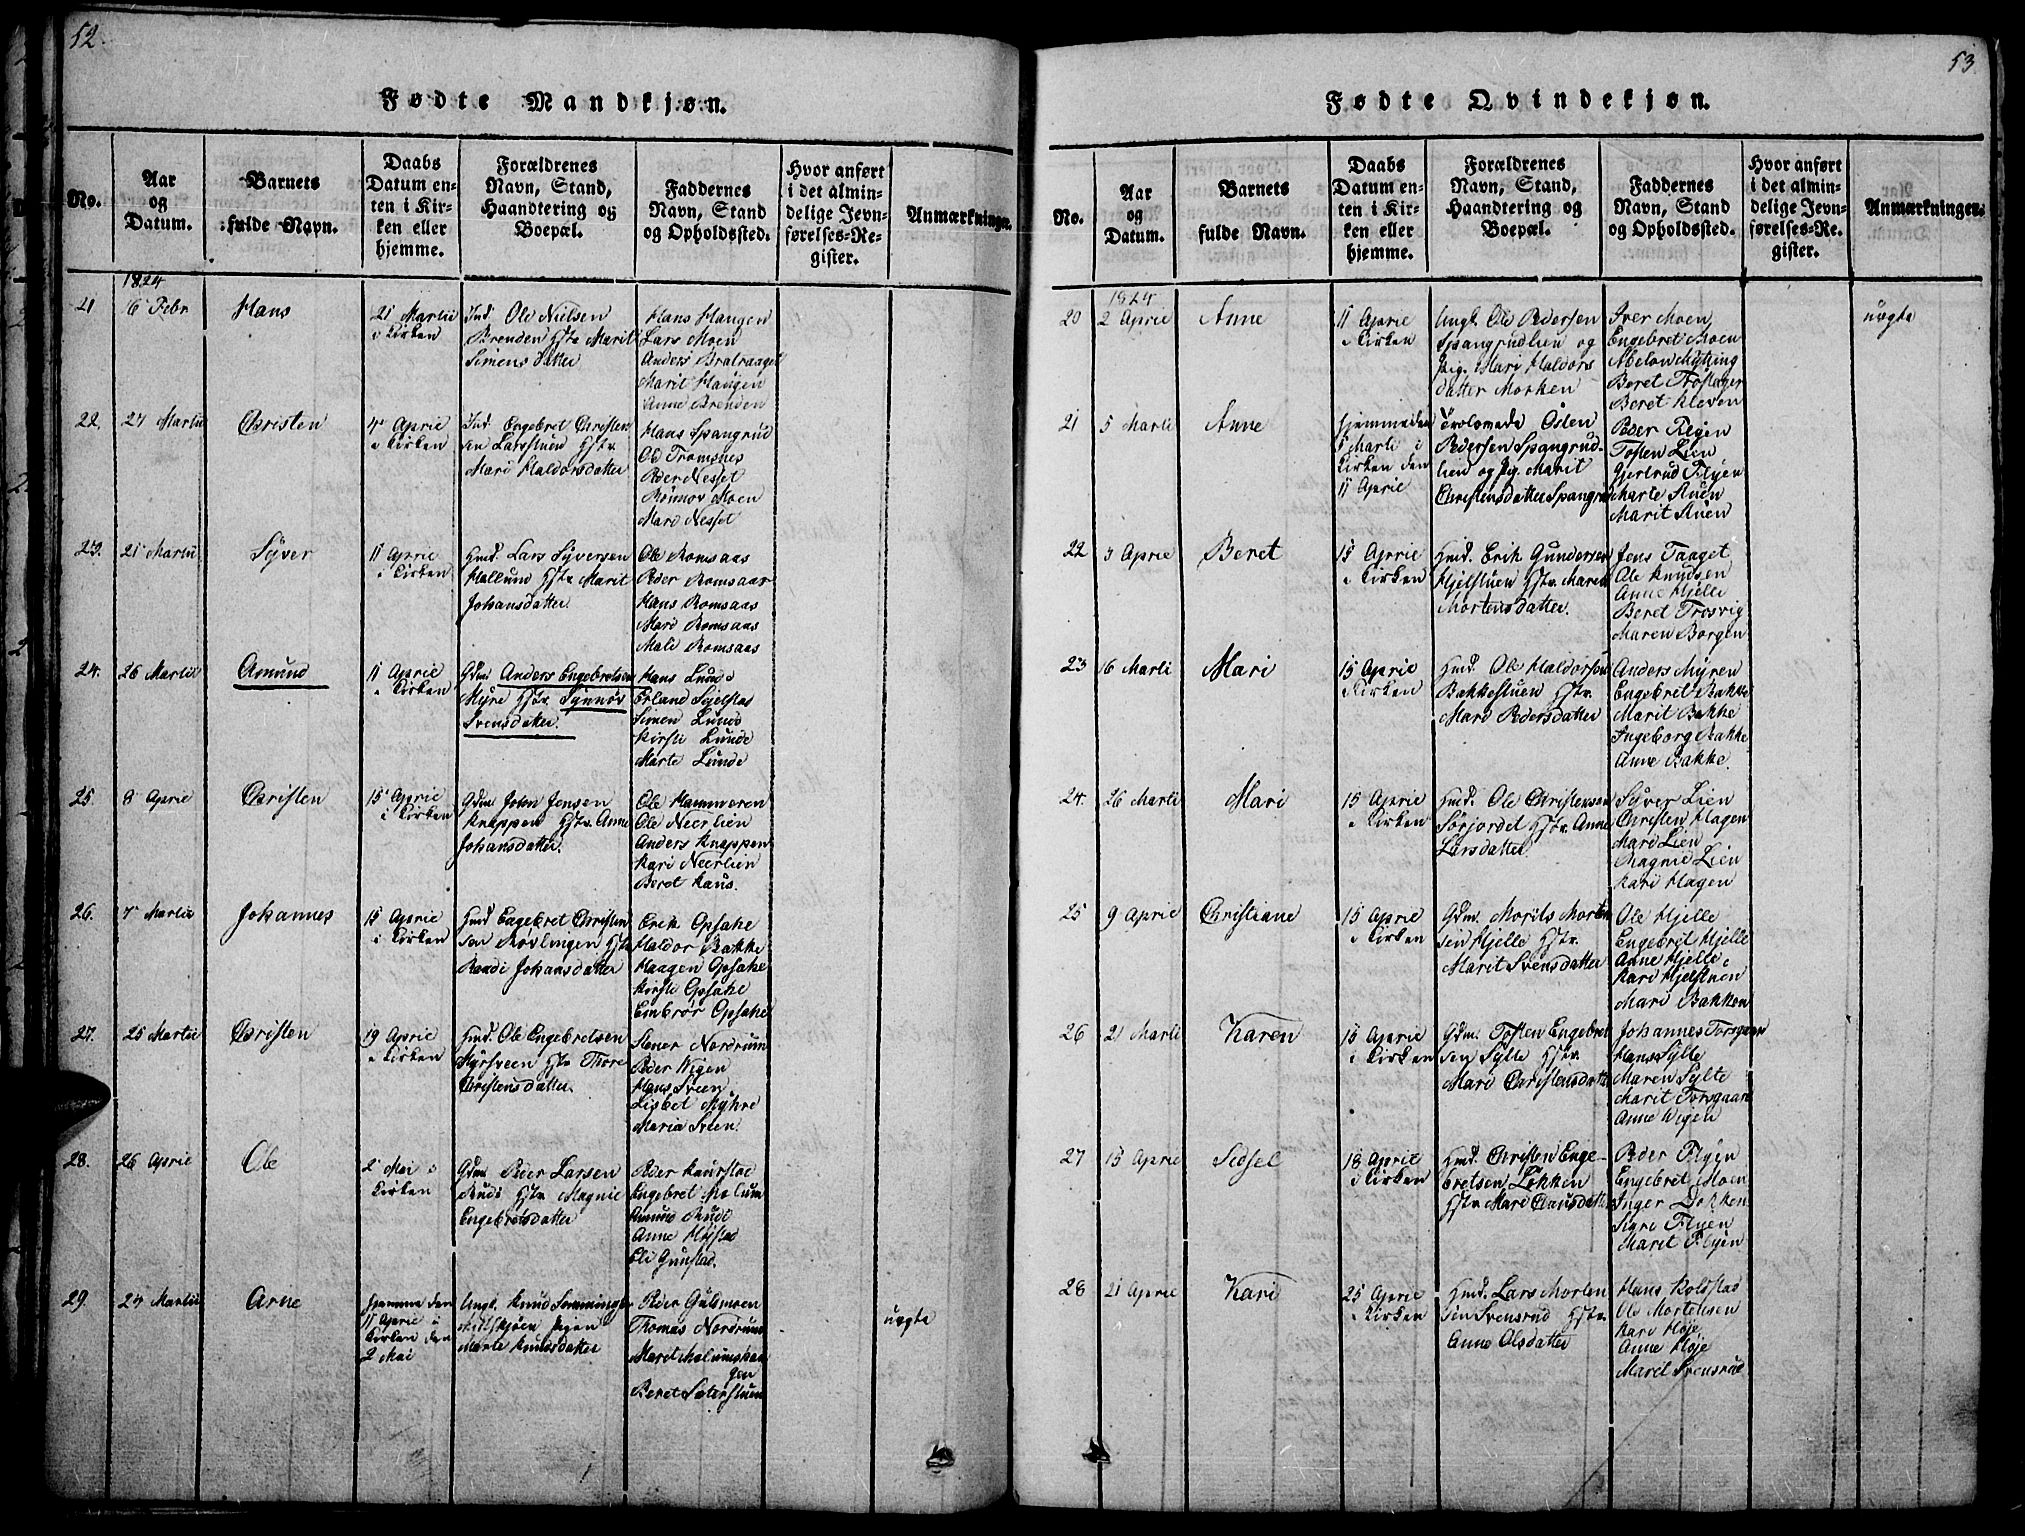 52.
Fødte Mandkjøn.
No.
Aar
og
Datum.
Barnets
fulde Navn.
Daabs
Datum en-
ten i Kir-
ken eller
hjemme.
Forældrenes
Navn, Stand,
Haandtering og
Boepæl.
Faddernes
Navn, Stand
og Opholdssted.
Hvor anført
i det almin-
delige Jevn-
førelses-Re-
gister.
Anmærkninger.
1824
21
16 Febr
Hans
21 Martii
i Kirken
Ole Nielsen
Brenden Hstr Marit
Simens Datter
Hans Haugen
Lars Moen
Anders
Marit Haugen
Anne Brenden
22.
27 Martii
Christen
4 April
i Kirken
Ind. Engebret Christen
sen Larsstuen Hstr
Mari Haldorsdatter
Hans Spangrud
Ole Tromsnes
Peder Nesset
Rønnov Moen
Mari Nesset
23.
21 Martii
Syver
11 April
i Kirken
Hmd. Lars Syversen
Hallund Hstr Marit
Johansdatter
Ole Romsaas
Peder Romsaas
Hans Romsaas
Mari Romsaas
Mali Romsaas
24.
26 Martii
Amund
11 April
i Kirken
Gdm Anders Engebretsen
Myre Hstr Synnøv
Svensdatter
Hans Lunde
Erland
Simen Lunde
Kirsti Lunde
Marte Lunde
25.
8 April
Christen
15 April
i Kirken
Gdm John Jensen
Knappen Hstr. Anne
Johansdatter
Ole Hammeren
Ole Neerlien
Anders Knappen
Kari Neerlien
Beret Kaus.
26.
7 Martii
Johannes
15 April
i Kirken
Hmd Engebret Christen
sen Røvlingen Hstr
Randi Johansdatter
Erik Opsahe
Haldor Bakke
Haagen Opsahe
Kirsti Opsahe
Embrør Opsahe
27.
25 Martii
Christen
19 April
i Kirken
Hmd. Ole Engebretsen
Myrsveen Hstr Thore
Christensdatter
Stener Nordrum
Peder Wigen
Hans Sveen
Lisbet Myhre
Maria Sveen.
28.
26 April
Ole
2 Mai i
Kirken
Gdm Peder Larsen
Rudi Hstr Magnie
Engebretsdatter
Peder
Engebret Molum
Amund Rudi
Anne Højstad
Eli Gunstad.
29.
24 Martii
Arne
hjemme den
11 April i
Kirken den
2 Mai
Ungk. Knud
Pigen
Marte Knudsdatter
Peder Gulmoen
Thomas Nordrum
Marit Malumshau
gen
Beret Seterstuen
uægte
53
Fødte Qvindekjøn.
No.
Aar
og
Datum.
Barnets
fulde Navn.
Daabs
Datum en-
ten i Kir-
ken eller
hjemme.
Forældrenes
Navn, Stand,
Haandtering og
Boepæl.
Faddernes
Navn, Stand
og Opholdssted.
Hvor anført
i det almin-
delige Jevn-
førelses-Re-
gister.
Anmærkninger.
1824
20
2 April
Anne
11 April
i Kirken
Ungk. Ole Pedersen
Spangrudlien og
Pig. Mari Haldors
datter Morken
Iver Moen
Engebret Moen
Beret
Beret Kleven
uægte
21
5 Marti
Anne
hjemme den
5 Marti i
Kirken den
11 April
Trolovede Osten
Pedersen Spangrud-
lien og Pg. Marit
Christensdatter Spangrud
Peder Flyen
Tosten Lien
Gjertrud Flyen
Marte Stuen
Marit Stuen
22
3 April
Beret
15 April
i Kirken
Hmd. Erik Gundersen
Hjelstuen Hstr. Maren
Mortensdatter.
Jens Taaget
Ole Knudsen
Anne Hjelle
Beret Trosvig
Maren Borgen
23
16 Marti
Mari
15 April
i Kirken
Hmd. Ole Haldorsen
Bakkestuen Hstr.
Mari Pedersdatter
Anders Myren
Engebret Bakke
Marit Bakke
Ingeborg Bakke
Anne Bakke.
24.
26 Marti
Mari
15 April
i Kirken
Hmd. Ole Christensen
Sørjordet Hstr. Anne
Larsdatter
Syver Lien
Christen Hagen
Mari Lien
Magnie Lien
Kari Hagen
25
9 April
Christiane
15 April
i Kirken
Gdm. Morits Morten
sen Hjelle Hstr.
Marit Svensdatter
Ole Hjelle
Engebret Hjelle
Anne Hjelle
Kari Hjelstuen
Mari Bakken
26
21 Marti
Karen
15 April
i Kirken
Gdm. Tosten Engebret
sen Sylte Hstr.
Mari Christensdatter
Johannes Forsgaard
Hans Sylte
Maren Sylte
Marit Forsgaard
Anne Wigen
27
15 April
Sidsel
18 April
i Kirken
Hmd. Christen Enge-
bretsen Løkken
Hstr Mari Clausdatter
Peder Flyen
Engebret Moen
Inger Løkken
Sigri Flyen
Marit Flyen
28
21 April
Kari
25 April
i Kirken
Hmd. Lars Morten
sen Svensrud Hstr.
Anne Olsdatter
Hans Kolstad
Ole Mortensen
Kari Høje
Anne Høje
Marit Svensrud